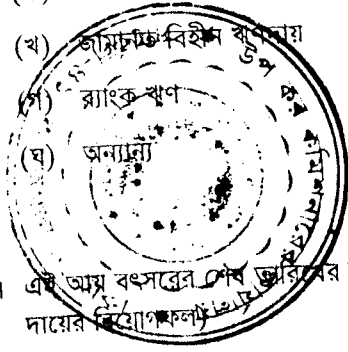 (খ) জামানত বিহীন ঋণ/দায়
(গ) ব্যাংক ঋণ
(ঘ) অন্যান্য
উপ কর কমিশনারের
এই আয় বৎসরের শেষ তারিখের
দায়ের বিয়োগফল)